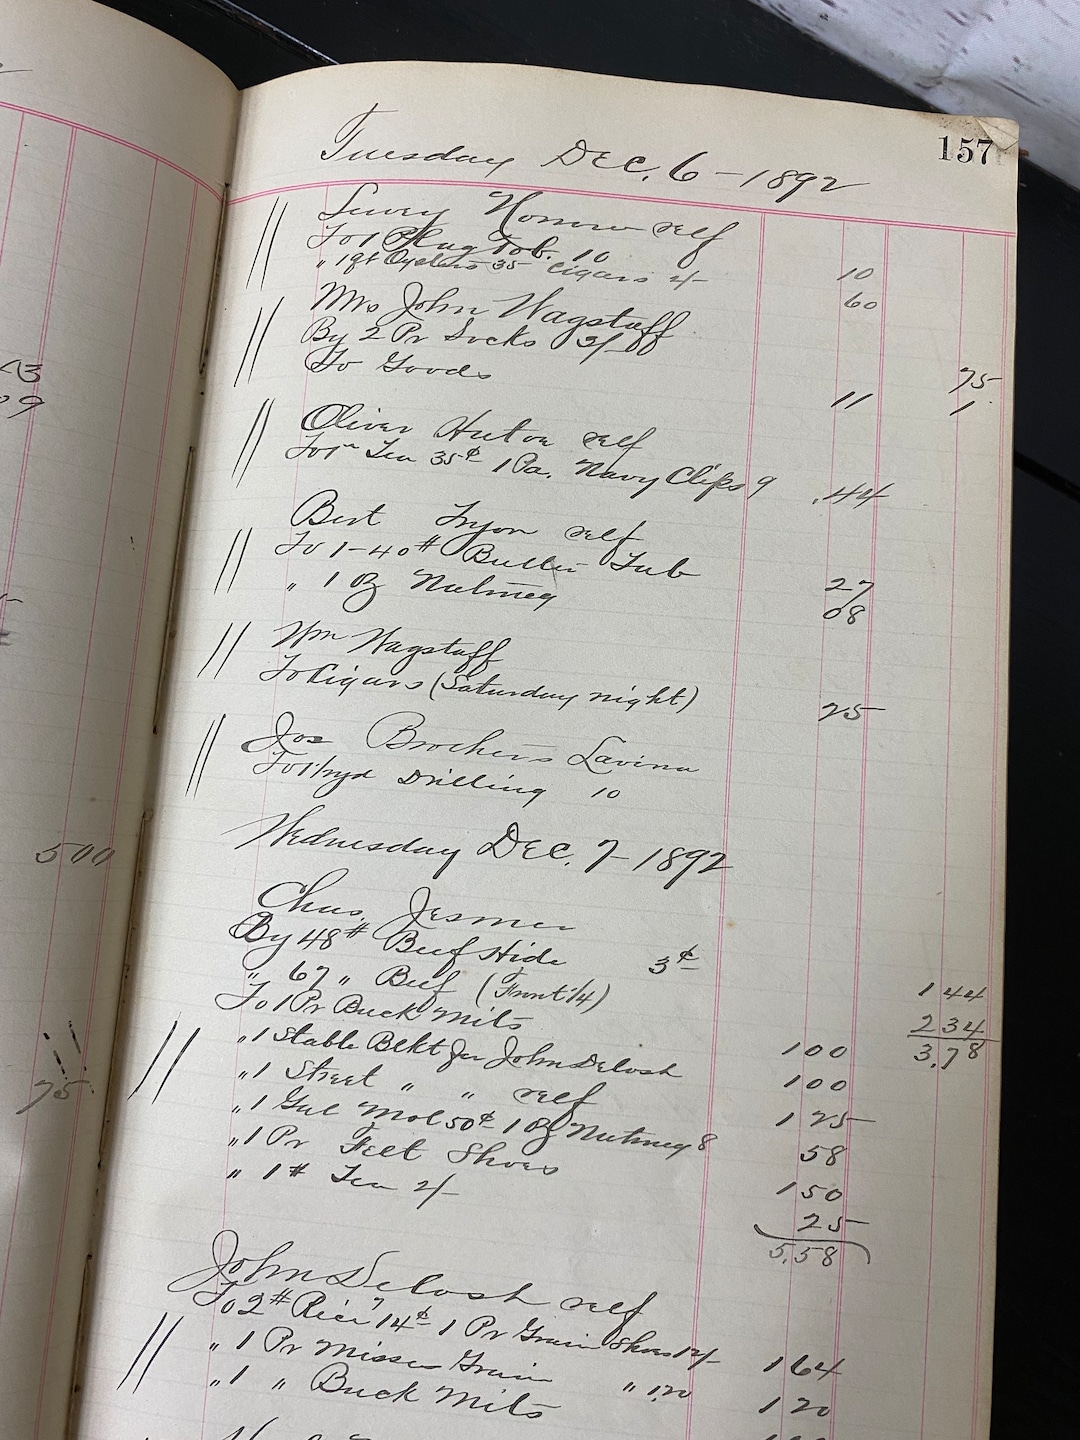 157
Tuesday Dec. 6 - 1892
self
To 1 Plug Tob. 10 10
" 1 qt Oysters 35 Cigars 2/- 60
Mrs John Wagstaff
By 2 Pr Socks 3/- 75
To Goods 11 1
Oliver self
Tea 35¢ 1 Pa. Navy Clips 9 .44
Bert Tryon self
To 1-40# Butter Tub 27
" 1 Oz Nutmeg 08
Wm Wagstaff
To Cigars (Saturday night) 25
Jos Lavina
Drilling 10
Wednesday Dec. 7 - 1892
Chas. Jesmer
By 48# Beef Hide 3¢ 144
" 67 " Beef (Front 1/4) 234
To 1 Pr Buck Mits 100 3.78
" 1 Stable Blkt for John Delosh 100
" 1 Street " " self 125
" 1 Gal Mol 50¢ 1 Oz Nutmeg 8 58
" 1 Pr Felt Shoes 150
" 1# Tea 2/- 25
5.58
John Delosh self
To 2# Rice 7 14¢ 1 Pr Grain Shoes 12/- 164
" 1 Pr Misses Grain " 1.20 120
" 1 " Buck Mits
43
09
500
75